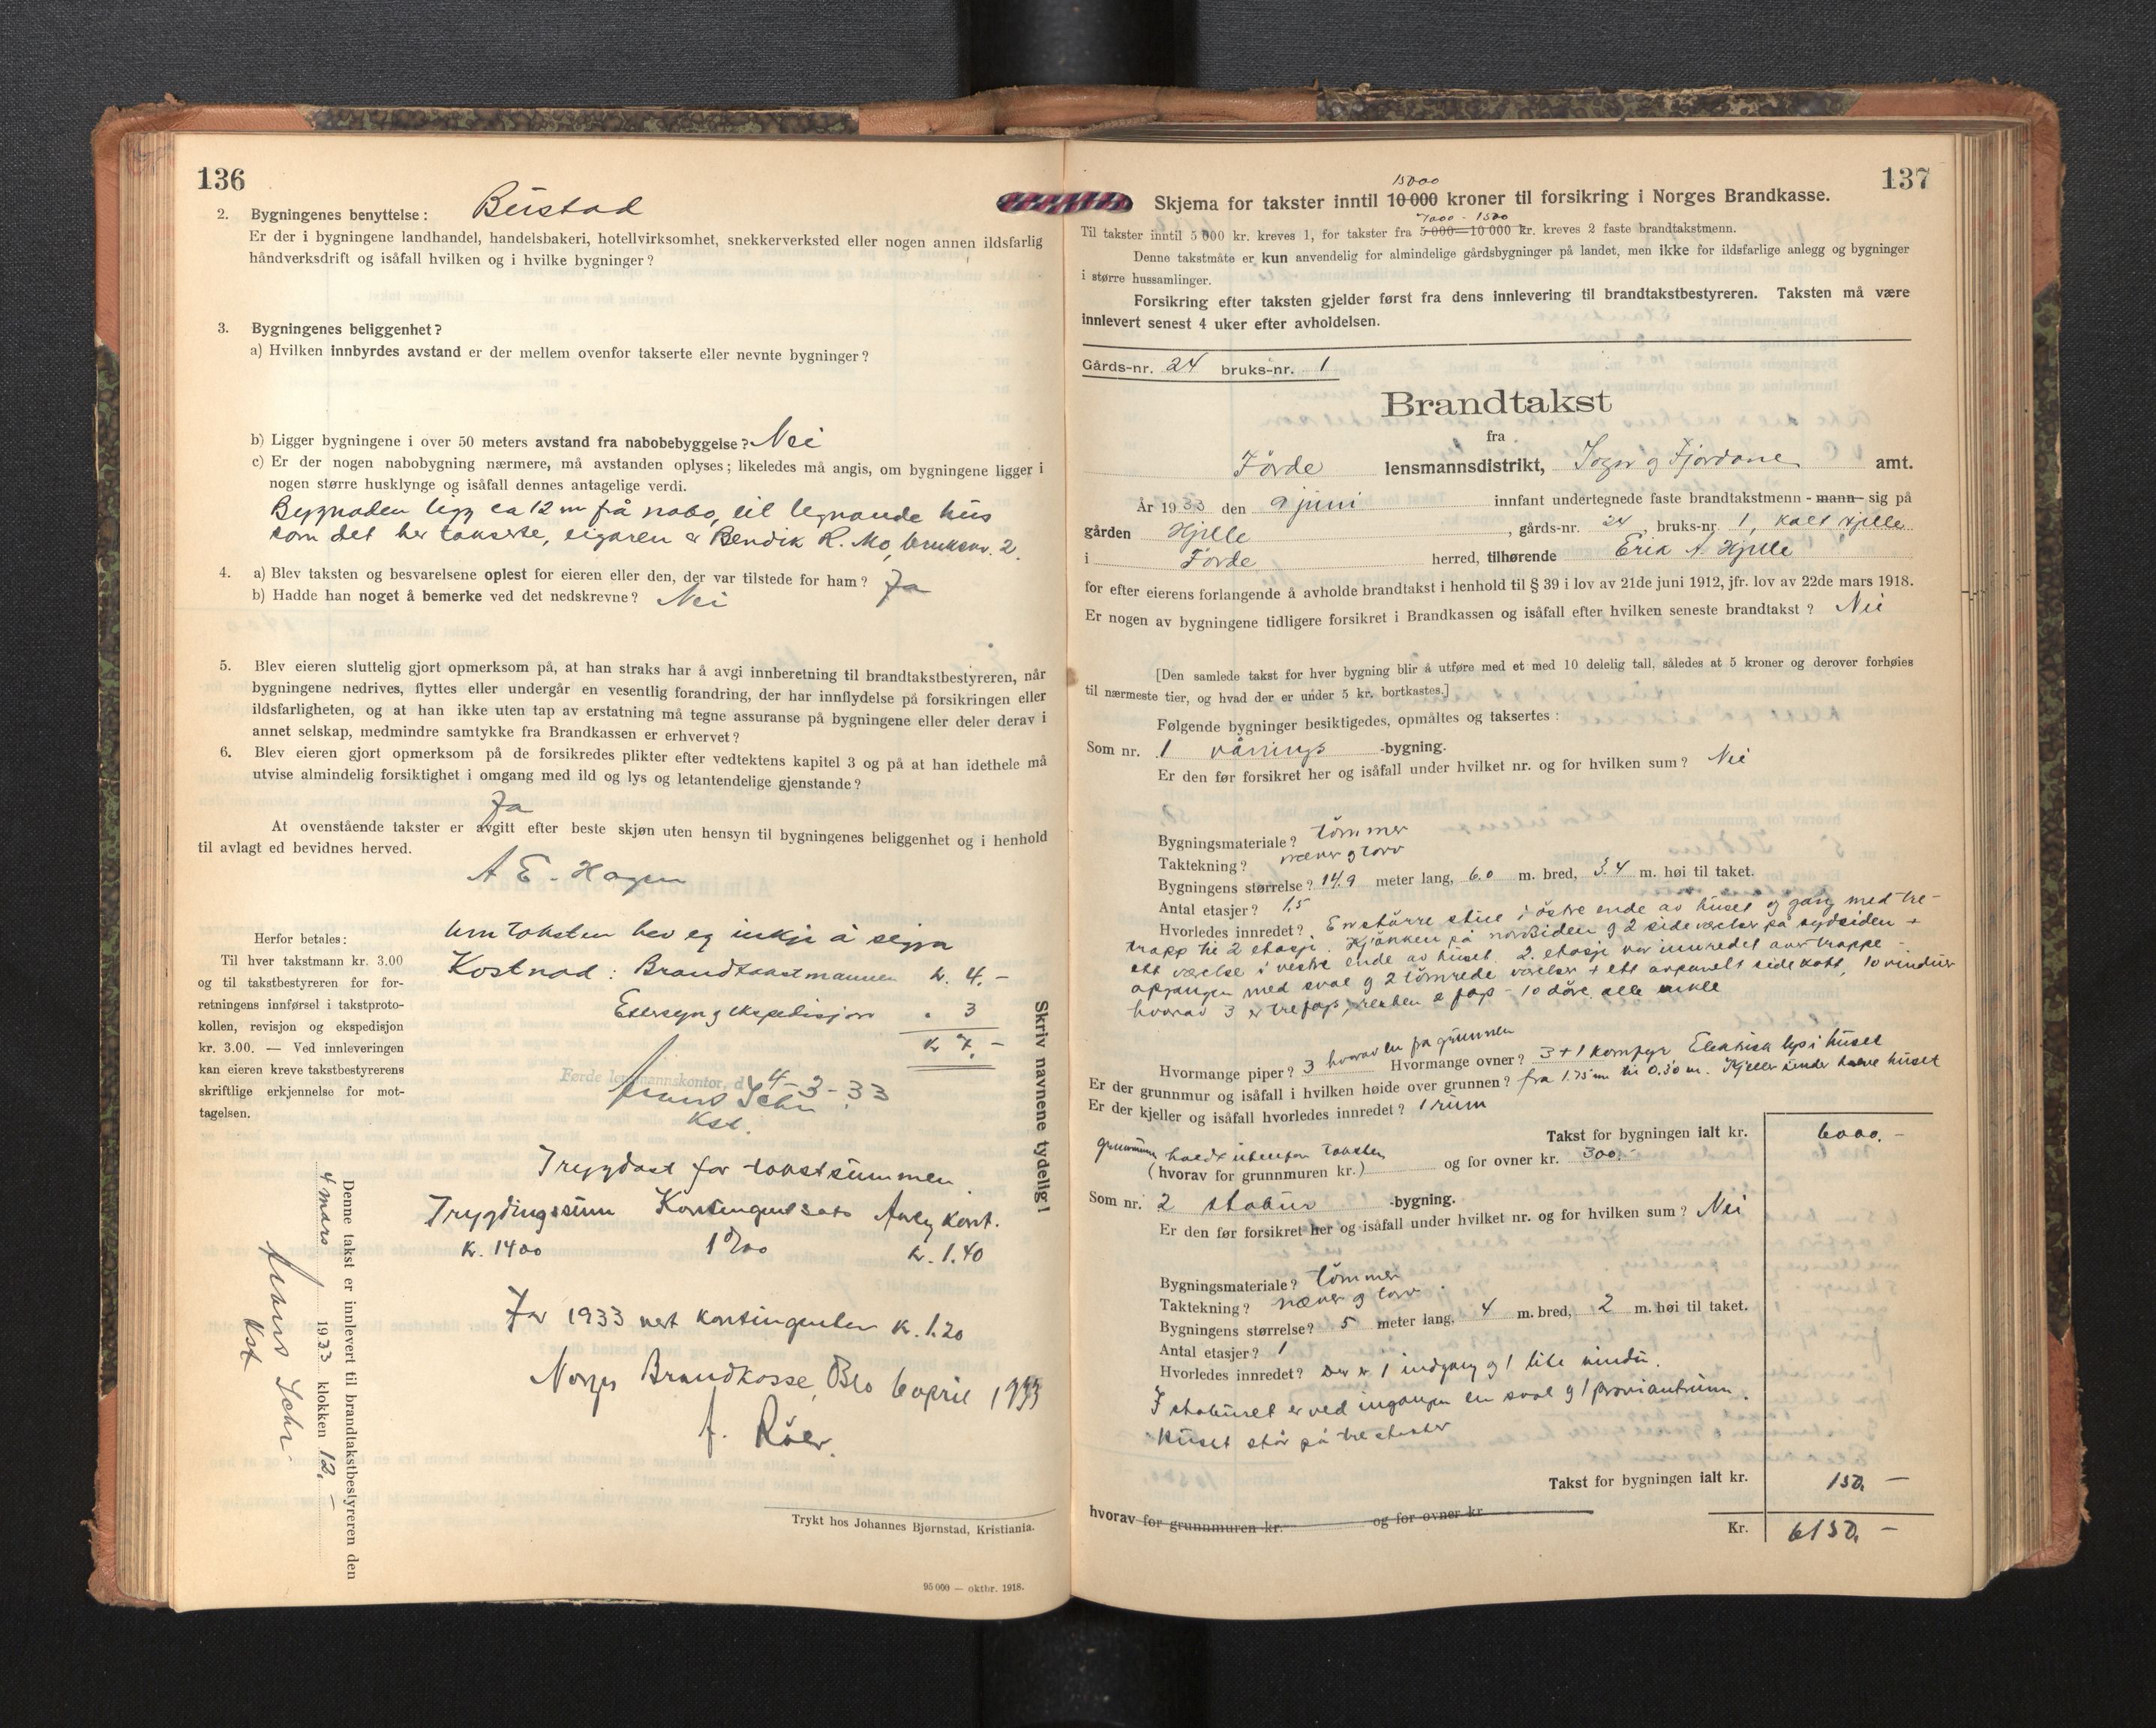 136
2. Bygningenes benyttelse: Bustad
Er der i bygningene landhandel, handelsbakeri, hotellvirksomhet, snekkerverksted eller nogen annen ildsfarlig
håndverksdrift og isåfall hvilken og i hvilke bygninger?
3. Bygningenes beliggenhet?
a) Hvilken innbyrdes avstand er der mellem ovenfor takserte eller nevnte bygninger?
b) Ligger bygningene i over 50 meters avstand fra nabobebyggelse? Nei
c) Er der nogen nabobygning nærmere, må avstanden oplyses; likeledes må angis, om bygningene ligger i
nogen større husklynge og isåfall dennes antagelige verdi.
Bygnaden ligg ca 12 m frå nabo, eit lignande hus
som det her takserte, eigaren er Bendik R. Mo, bruksnr. 2.
4. a) Blev taksten og besvarelsene oplest for eieren eller den, der var tilstede for ham? Ja
b) Hadde han noget å bemerke ved det nedskrevne? Nei
5. Blev eieren sluttelig gjort opmerksom på, at han straks har å avgi innberetning til brandtakstbestyreren, når
bygningene nedrives, flyttes eller undergår en vesentlig forandring, der har innflydelse på forsikringen eller
ildsfarligheten, og at han ikke uten tap av erstatning må tegne assuranse på bygningene eller deler derav i
annet selskap, medmindre samtykke fra Brandkassen er erhvervet?
6. Blev eieren gjort opmerksom på de forsikredes plikter efter vedtektens kapitel 3 og på at han idethele må
utvise almindelig forsiktighet i omgang med ild og lys og letantendelige gjenstande?
Ja
At ovenstående takster er avgitt efter beste skjøn uten hensyn til bygningenes beliggenhet og i henhold
til avlagt ed bevidnes herved.
A E. Hagen
Herfor betales:
Til hver takstmann kr. 3.00
og til takstbestyreren for for-
retningens innførsel i takstproto-
kollen, revisjon og ekspedisjon
kr. 3.00. — Ved innleveringen
kan eieren kreve takstbestyrerens
skriftlige erkjennelse for mot-
tagelsen.
Um taksten hev eg inkje å segja
Kostnad: Brandtakstmannen kr. 4.-
Ettersyn og ekspedisjon " 3
Kr 7.-
Førde lensmannskontor, d. 4-3-33
Kst.
Skriv navnene tydelig!
Trygdast for takstsummen.
Trygdingssum Kontingentsats Årleg kont.
Kr. 1400 1 0/00 kr. 1.40
For 1933 vert kontingenten kr. 1.20
Norges Brandkasse, Oslo 6 april 1933
f. Röer.
Denne takst er innlevert til brandtakstbestyreren den
4 mars 1933 klokken 12.-
Kst
Trykt hos Johannes Bjørnstad, Kristiania.
95 000 — oktbr. 1918.
137
15000
Skjema for takster inntil 10 000 kroner til forsikring i Norges Brandkasse.
7000 - 1500
Til takster inntil 5 000 kr. kreves 1, for takster fra 5 000—10 000 kr. kreves 2 faste brandtakstmenn.
Denne takstmåte er kun anvendelig for almindelige gårdsbygninger på landet, men ikke for ildsfarlige anlegg og bygninger
i større hussamlinger.
Forsikring efter taksten gjelder først fra dens innlevering til brandtakstbestyreren. Taksten må være
innlevert senest 4 uker efter avholdelsen.
Gårds-nr. 24 bruks-nr. 1
Brandtakst
fra
Förde lensmannsdistrikt, Sogn og Fjordane amt.
År 1933 den 9 juni innfant undertegnede faste brandtakstmenn - mann sig på
gården Hjelle, gårds-nr. 24, bruks-nr. 1, kalt Hjelle
i Förde herred, tilhørende Erik A. Hjelle
for efter eierens forlangende å avholde brandtakst i henhold til § 39 i lov av 21de juni 1912, jfr. lov av 22de mars 1918.
Er nogen av bygningene tidligere forsikret i Brandkassen og isåfall efter hvilken seneste brandtakst? Nei
[Den samlede takst for hver bygning blir å utføre med et med 10 delelig tall, således at 5 kroner og derover forhøies
til nærmeste tier, og hvad der er under 5 kr. bortkastes.]
Følgende bygninger besiktigedes, opmåltes og taksertes:
Som nr. 1 vånings -bygning.
Er den før forsikret her og isåfall under hvilket nr. og for hvilken sum? Nei
Bygningsmateriale? tömmer
Taktekning? næver og torv
Bygningens størrelse? 14.9 meter lang, 6.0 m. bred, 3.4 m. høi til taket.
Antal etasjer? 1.5
Hvorledes innredet? En större stue i östre ende av huset og gang med tre-
trapp til 2 etasje. Kjökken på nordsiden og 2 sideværelser på sydsiden +
ett værelse i vestre ende av huset. 2. etasje var innredet av trappe-
opgangen med sval og 2 tömrede værelser + ett avpanelt sidekott, 10 vinduer
hvorav 3 er trefags, resten 2 fags - 10 döre alle enkle
Hvormange piper? 3 hvorav en på grunnen Hvormange ovner? 3 + 1 komfyr, Elektrisk lys i huset
Er der grunnmur og isåfall i hvilken høide over grunnen? fra 1.75 m til 0.30 m. Kjeller under halve huset
Er der kjeller og isåfall hvorledes innredet? 1 rum
Takst for bygningen ialt kr. 6000.-
grunnmuren holdt utenfor taksten
(hvorav for grunnmuren kr.) og for ovner kr. 300.-
Som nr. 2 stabur -bygning.
Er den før forsikret her og isåfall under hvilket nr. og for hvilken sum? Nei
Bygningsmateriale? tömmer
Taktekning? næver og torv
Bygningens størrelse? 5 meter lang, 4 m. bred, 2 m. høi til taket.
Antal etasjer? 1
Hvorledes innredet? Der er 1 indgang og 1 lite vindu.
I staburet er ved ingangen en sval og 1 proviantrum.
Huset står på trestaber
Takst for bygningen ialt kr. 150.-
hvorav for grunnmuren kr. og for ovner kr
Kr. 6150.-